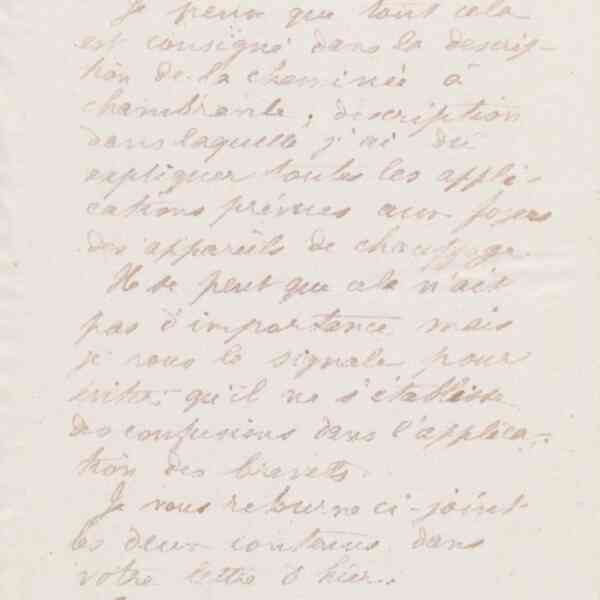 Je pense que tout cela
est consigné dans la descrip-
tion de la cheminée à
chambranle, description
dans laquelle j'ai dû
expliquer toutes les appli-
cations prévues aux foyers
des appareils de chauffage.
Il se peut que cela n'ait
pas d'importance mais
je vous le signale pour
éviter qu'il ne s'établisse
des confusions dans l'applica-
tion des brevets.
Je vous retourne ci-joint
les deux contenus dans
votre lettre d'hier.